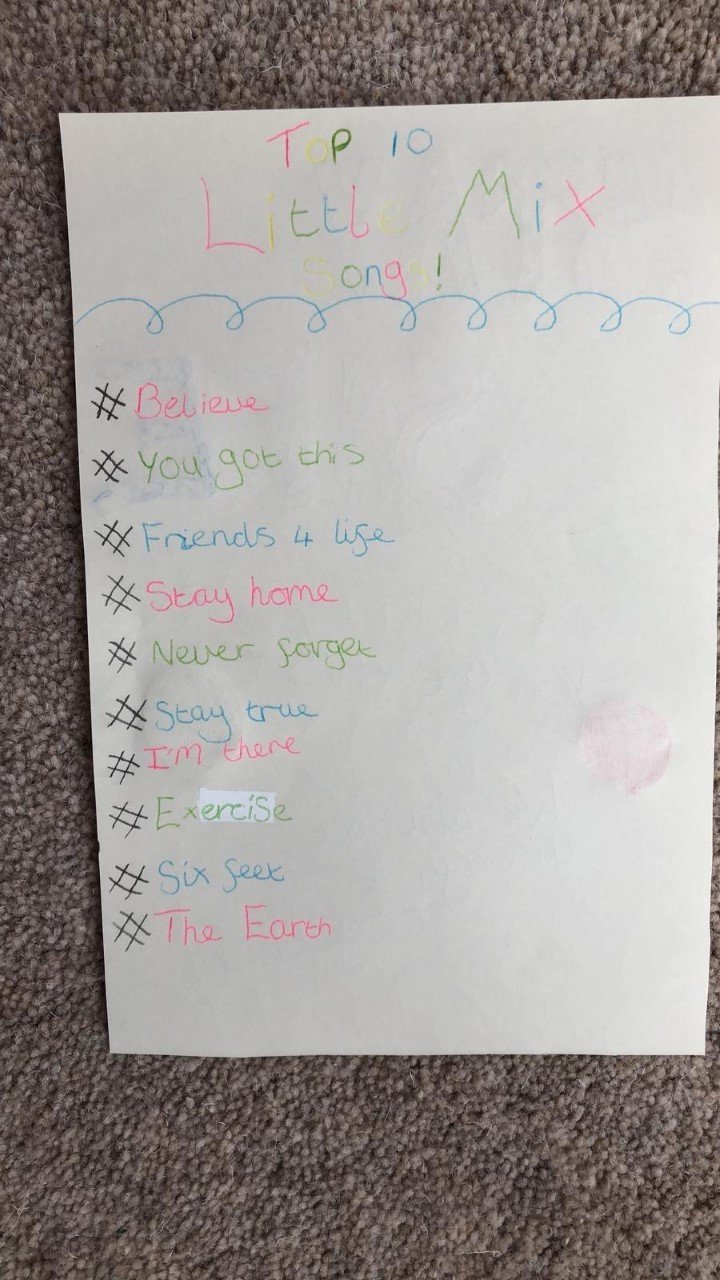 Top 10
Little Mix
Songs!
# Believe
# You got this
# Friends 4 life
# Stay home
# Never forget
# Stay true
# I'm there
# Exercise
# Six feet
# The Earth